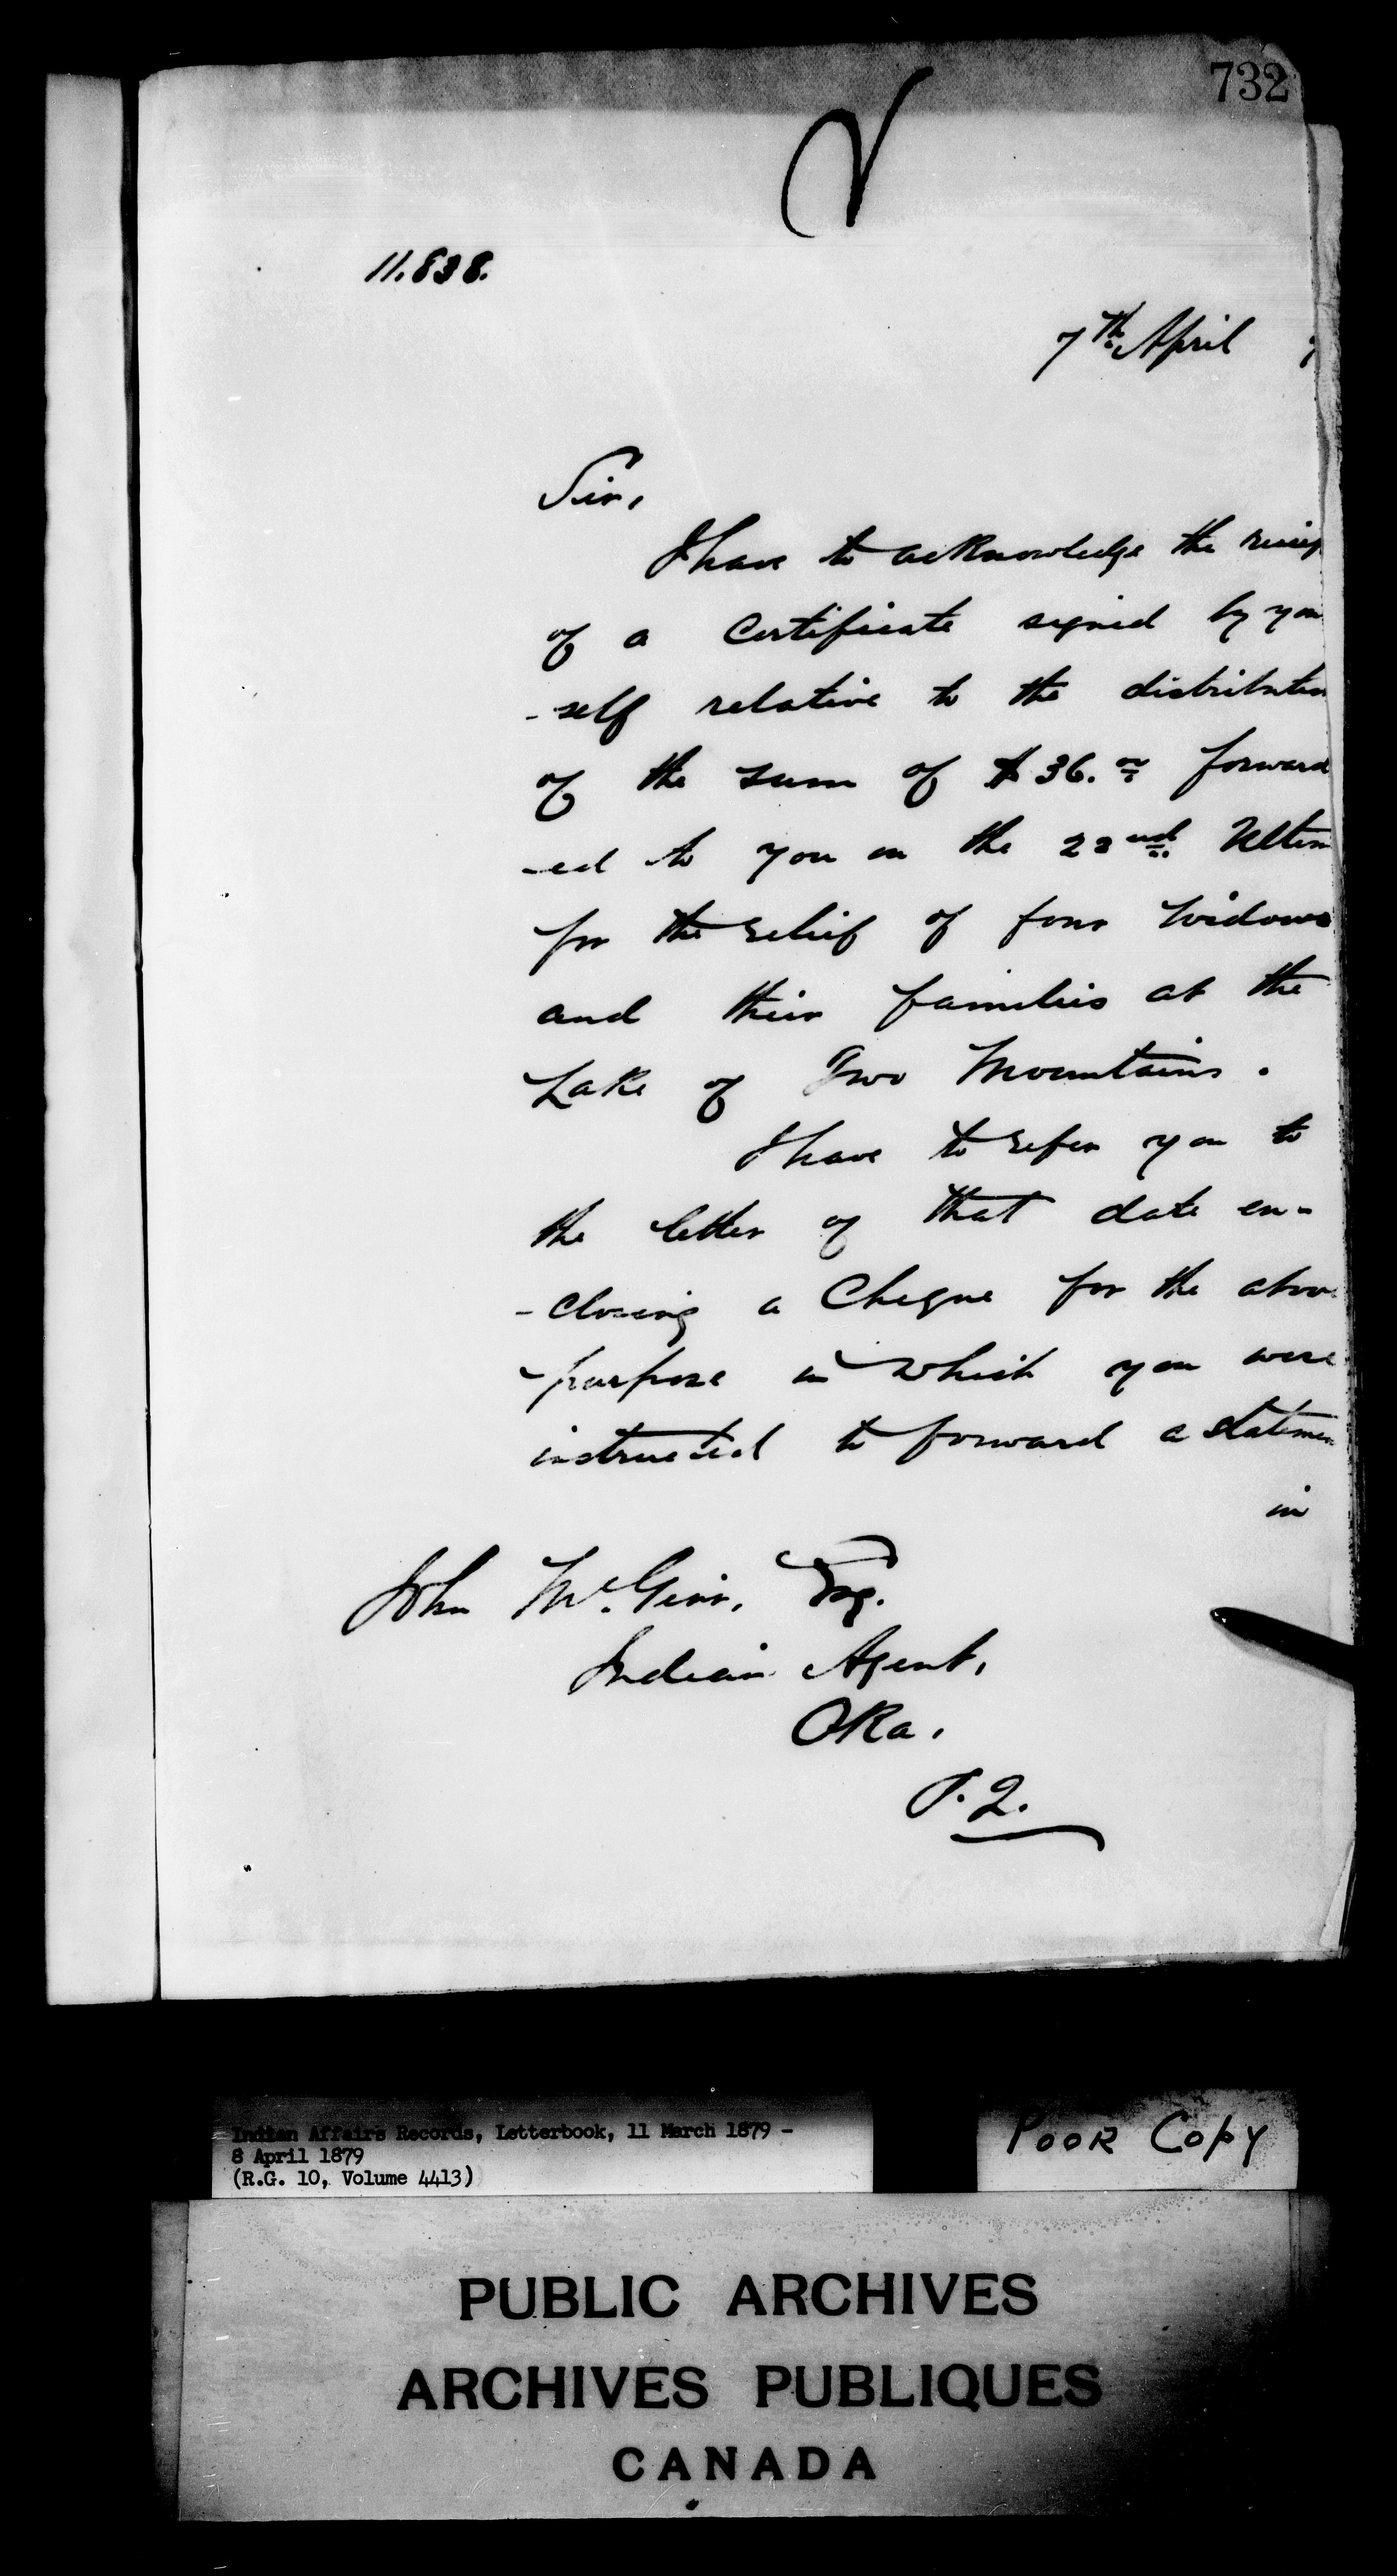 732
11.838.
7th April 7
Sir,
I have to acknowledge the receip
of a Certificate signed by you
-self relative to the distribution
of the sum of $36.00 forward
-ed to you on the 22nd Ultim
for the relief of four Widows
and their families at the
Lake of Two Mountains.
I have to refer you to
the letter of that date en-
-closing a Cheque for the above
purpose in which you were
instructed to forward a statemen
in
John McGirr, Esq.
Indian Agent,
Oka,
P.Q.
Indian Affairs Records, Letterbook, 11 March 1879 -
8 April 1879
(R.G. 10, Volume 4413)
POOR COPY
PUBLIC ARCHIVES
ARCHIVES PUBLIQUES
CANADA